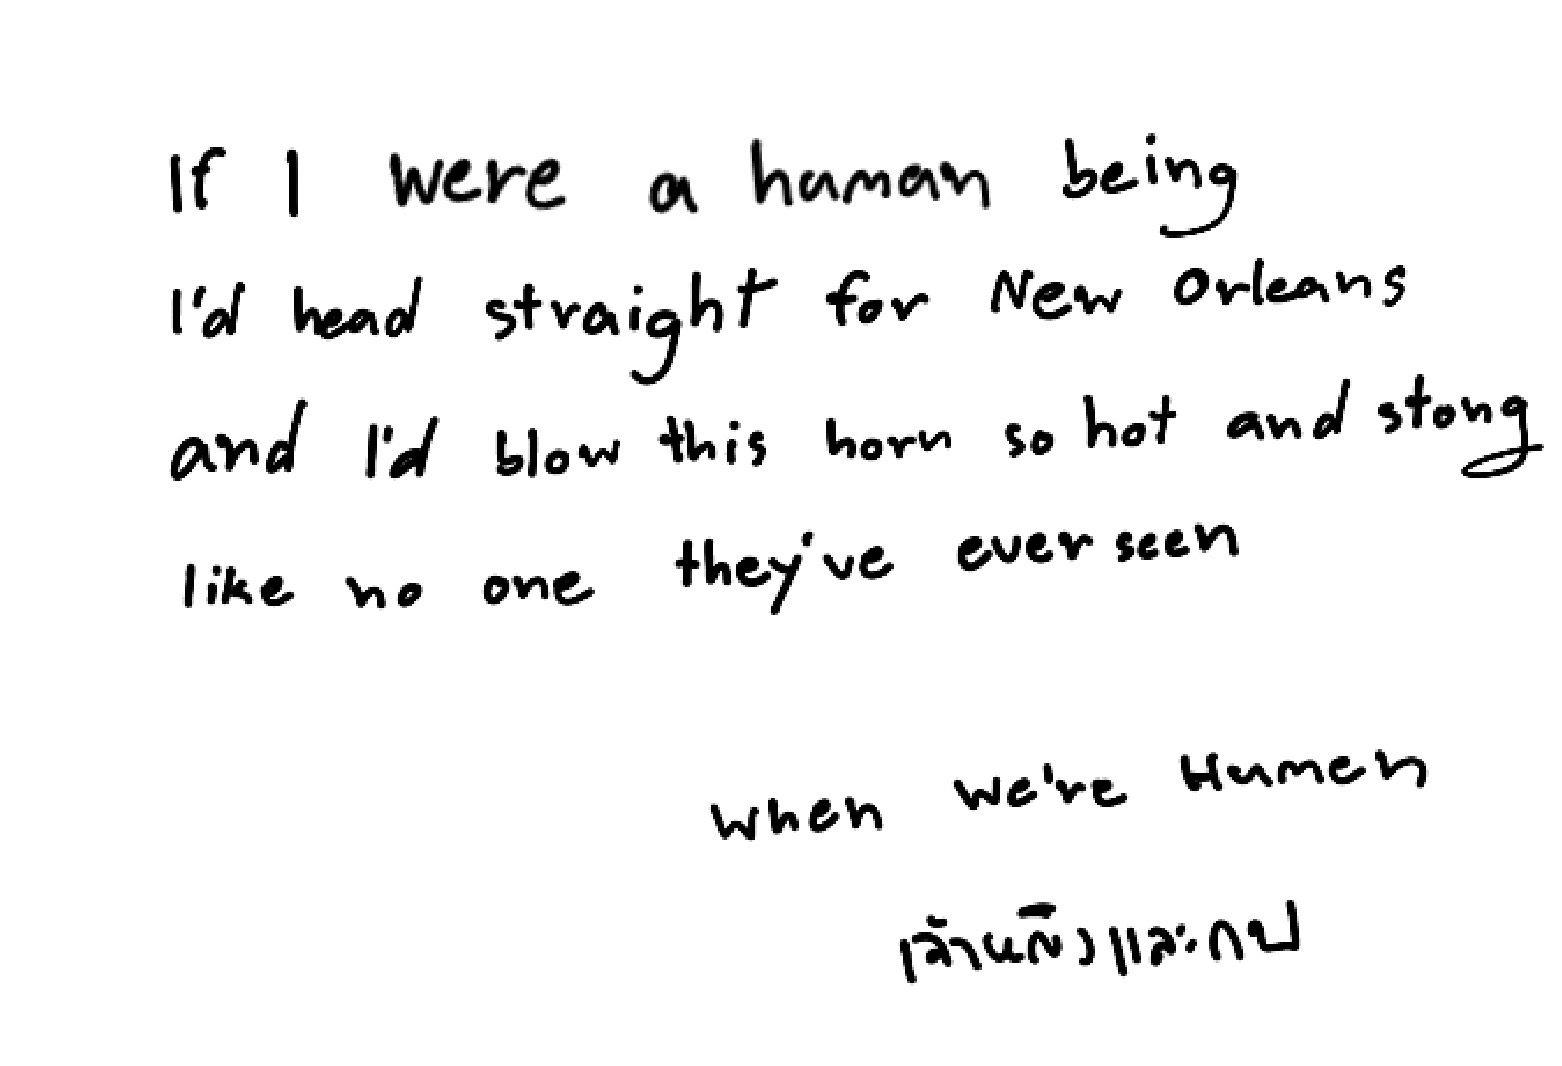 If I were a human being
I'd head straight for New Orleans
and I'd blow this horn so hot and stong
like no one they've ever seen
When We're Human
เจ้าหญิงและกบ